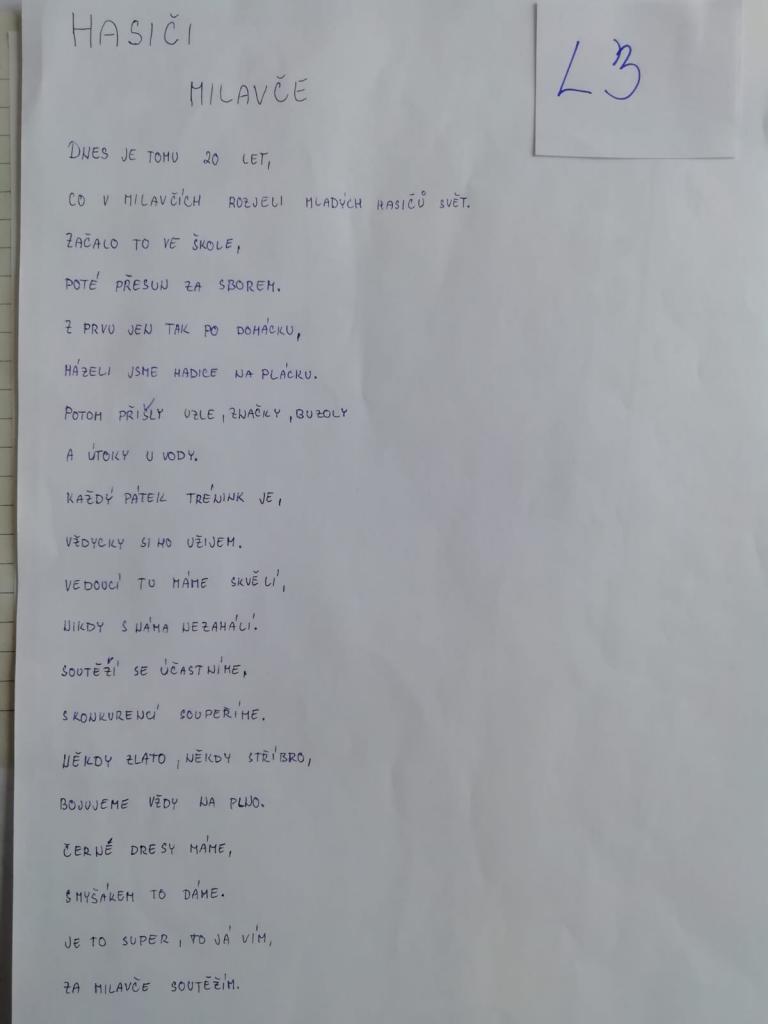 HASIČI
MILAVČE
L3
DNES JE TOMU 20 LET,
CO V MILAVČÍCH ROZJELI MLADÝCH HASIČŮ SVĚT.
ZAČALO TO VE ŠKOLE,
POTÉ PŘESUN ZA SBOREM.
Z PRVU JEN TAK PO DOMÁCKU,
HÁZELI JSME HADICE NA PLÁCKU.
POTOM PŘIŠLY UZLE, ZNAČKY, BUZOLY
A ÚTOKY U VODY.
KAŽDÝ PÁTEK TRÉNINK JE,
VŽDYCKY SI HO UŽIJEM.
VEDOUCÍ TU MÁME SKVĚLÍ,
NIKDY S NÁMA NEZAHÁLÍ.
SOUTĚŽÍ SE ÚČASTNÍME,
S KONKURENCÍ SOUPEŘÍME.
NĚKDY ZLATO, NĚKDY STŘÍBRO,
BOJUJEME VŽDY NA PLNO.
ČERNÉ DRESY MÁME,
S MYŠÁKEM TO DÁME.
JE TO SUPER, TO JÁ VÍM,
ZA MILAVČE SOUTĚŽÍM.